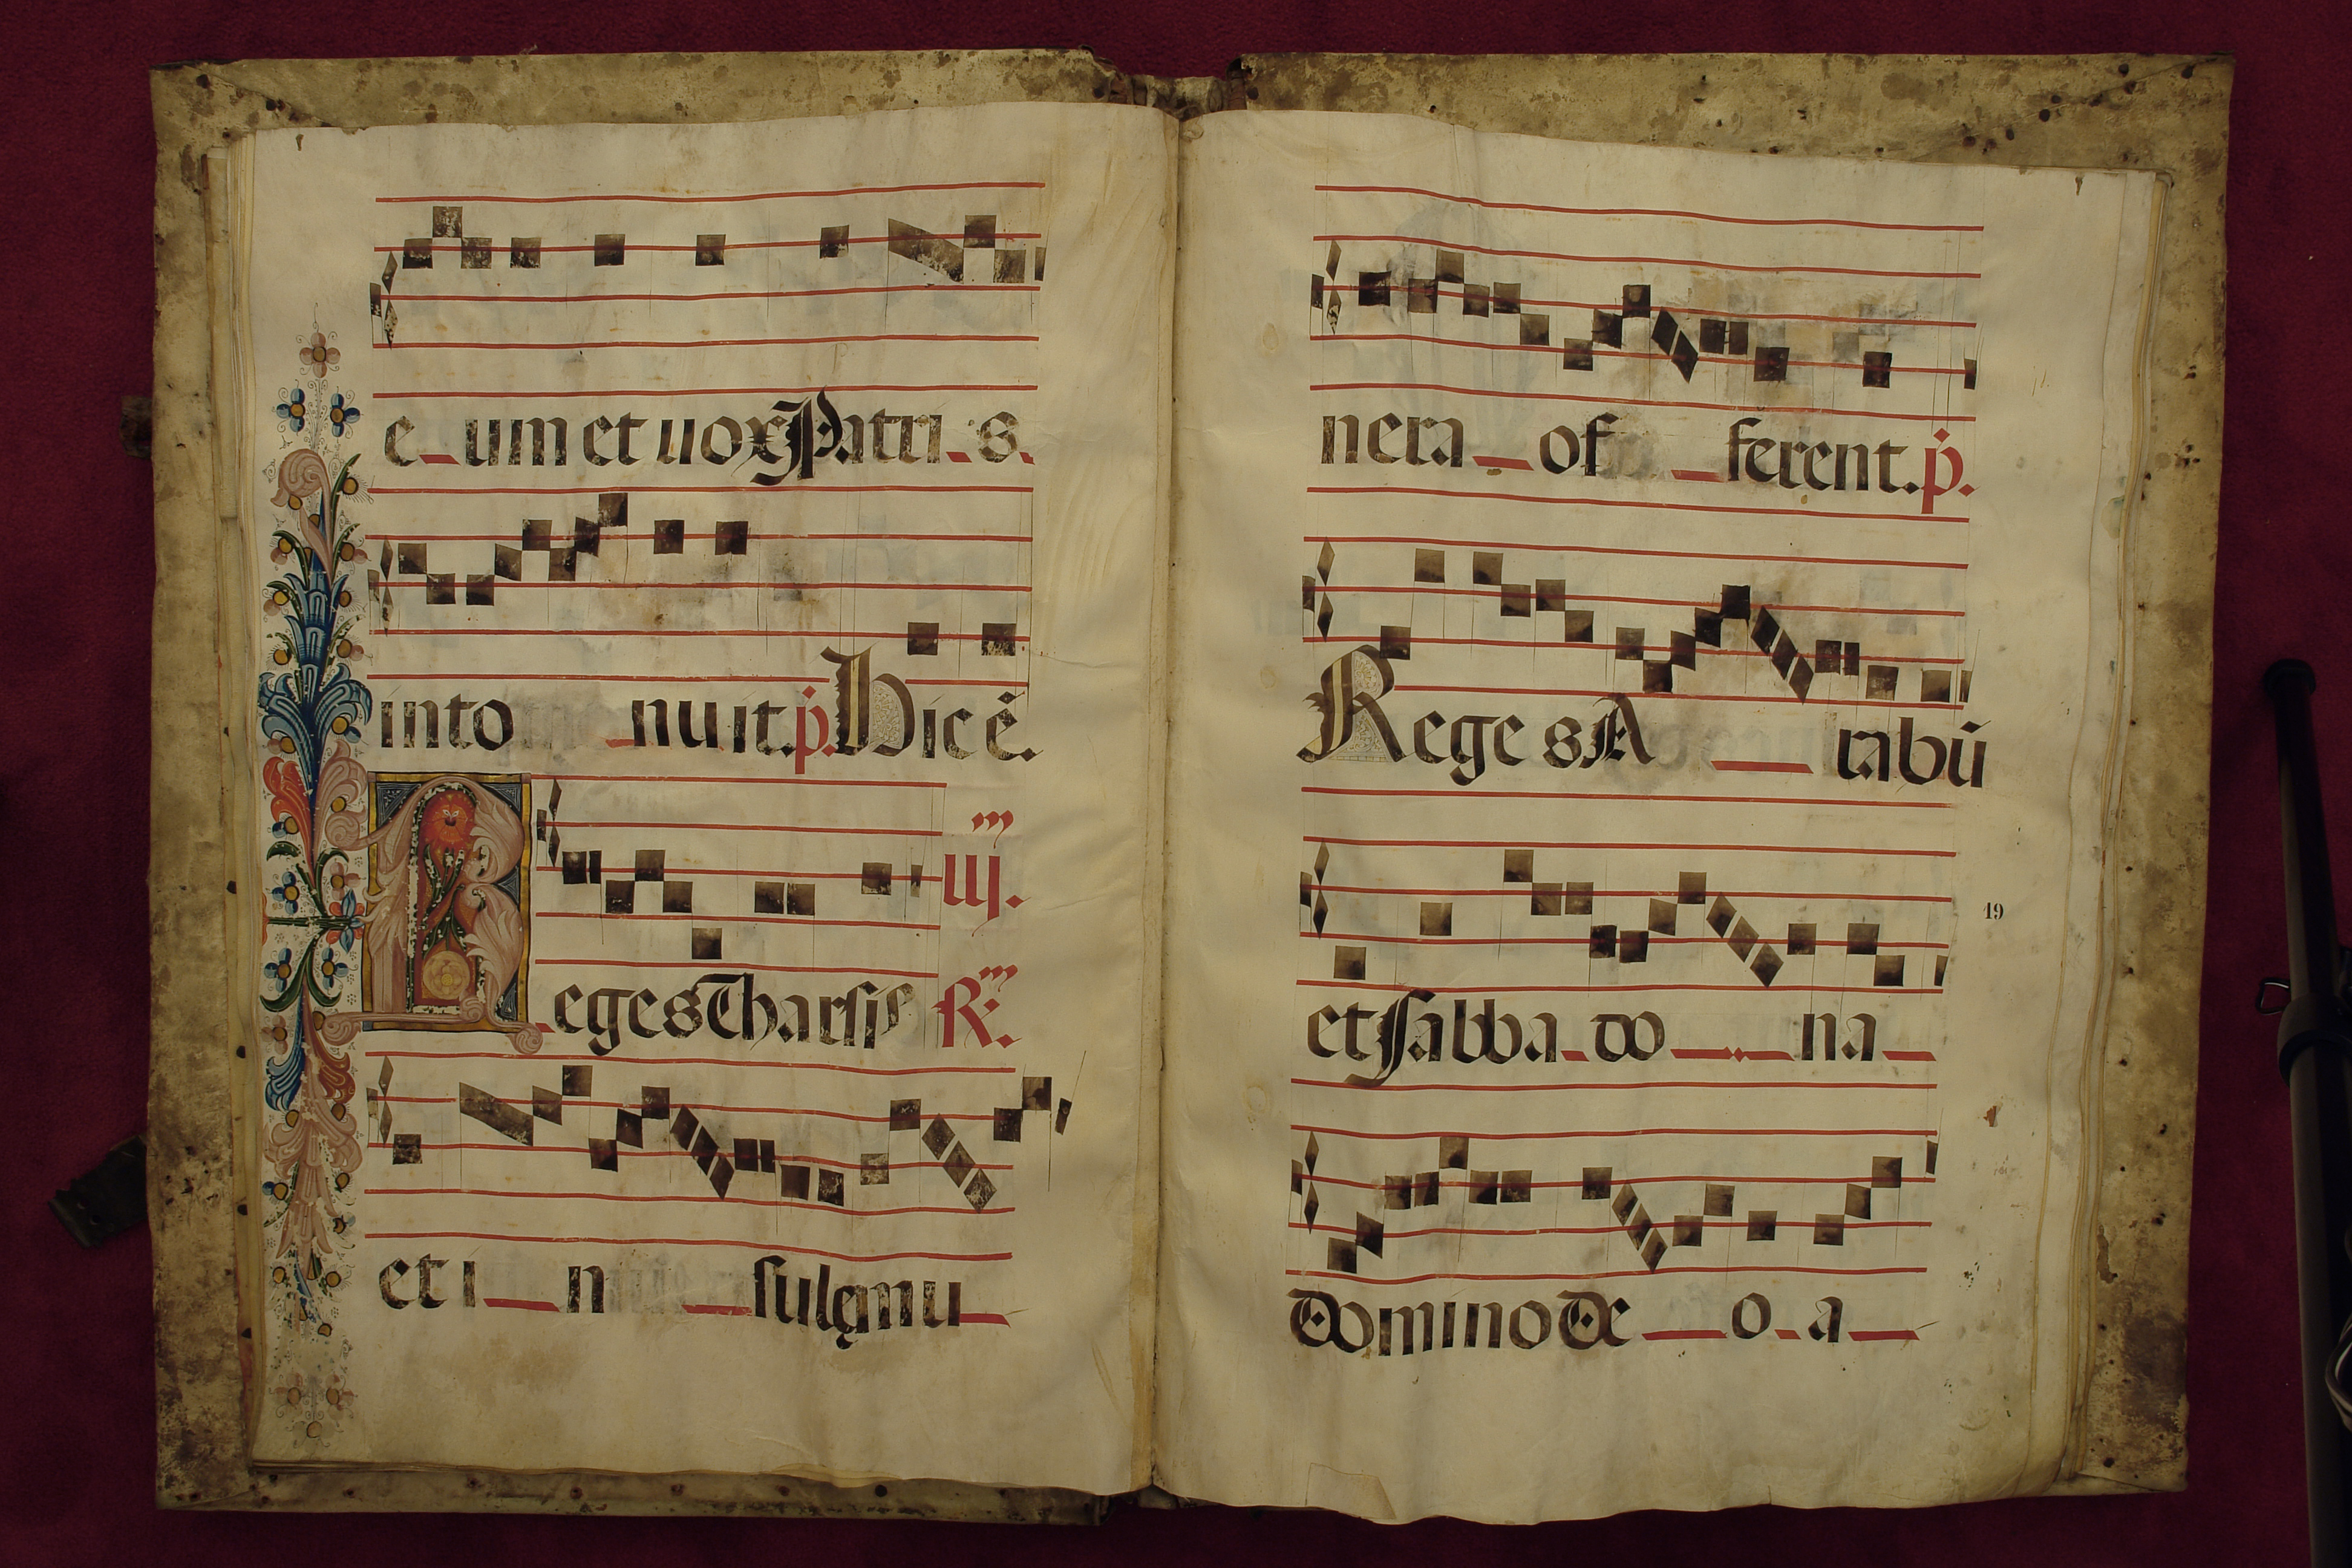 e um et uox Patri s.
into nuit. p. Hic é.
Reges Tharsis
iij.
R.
et i n sulę mu
nera of ferent. p.
Reges A rabū
et Sabba do na
19
domino De o a